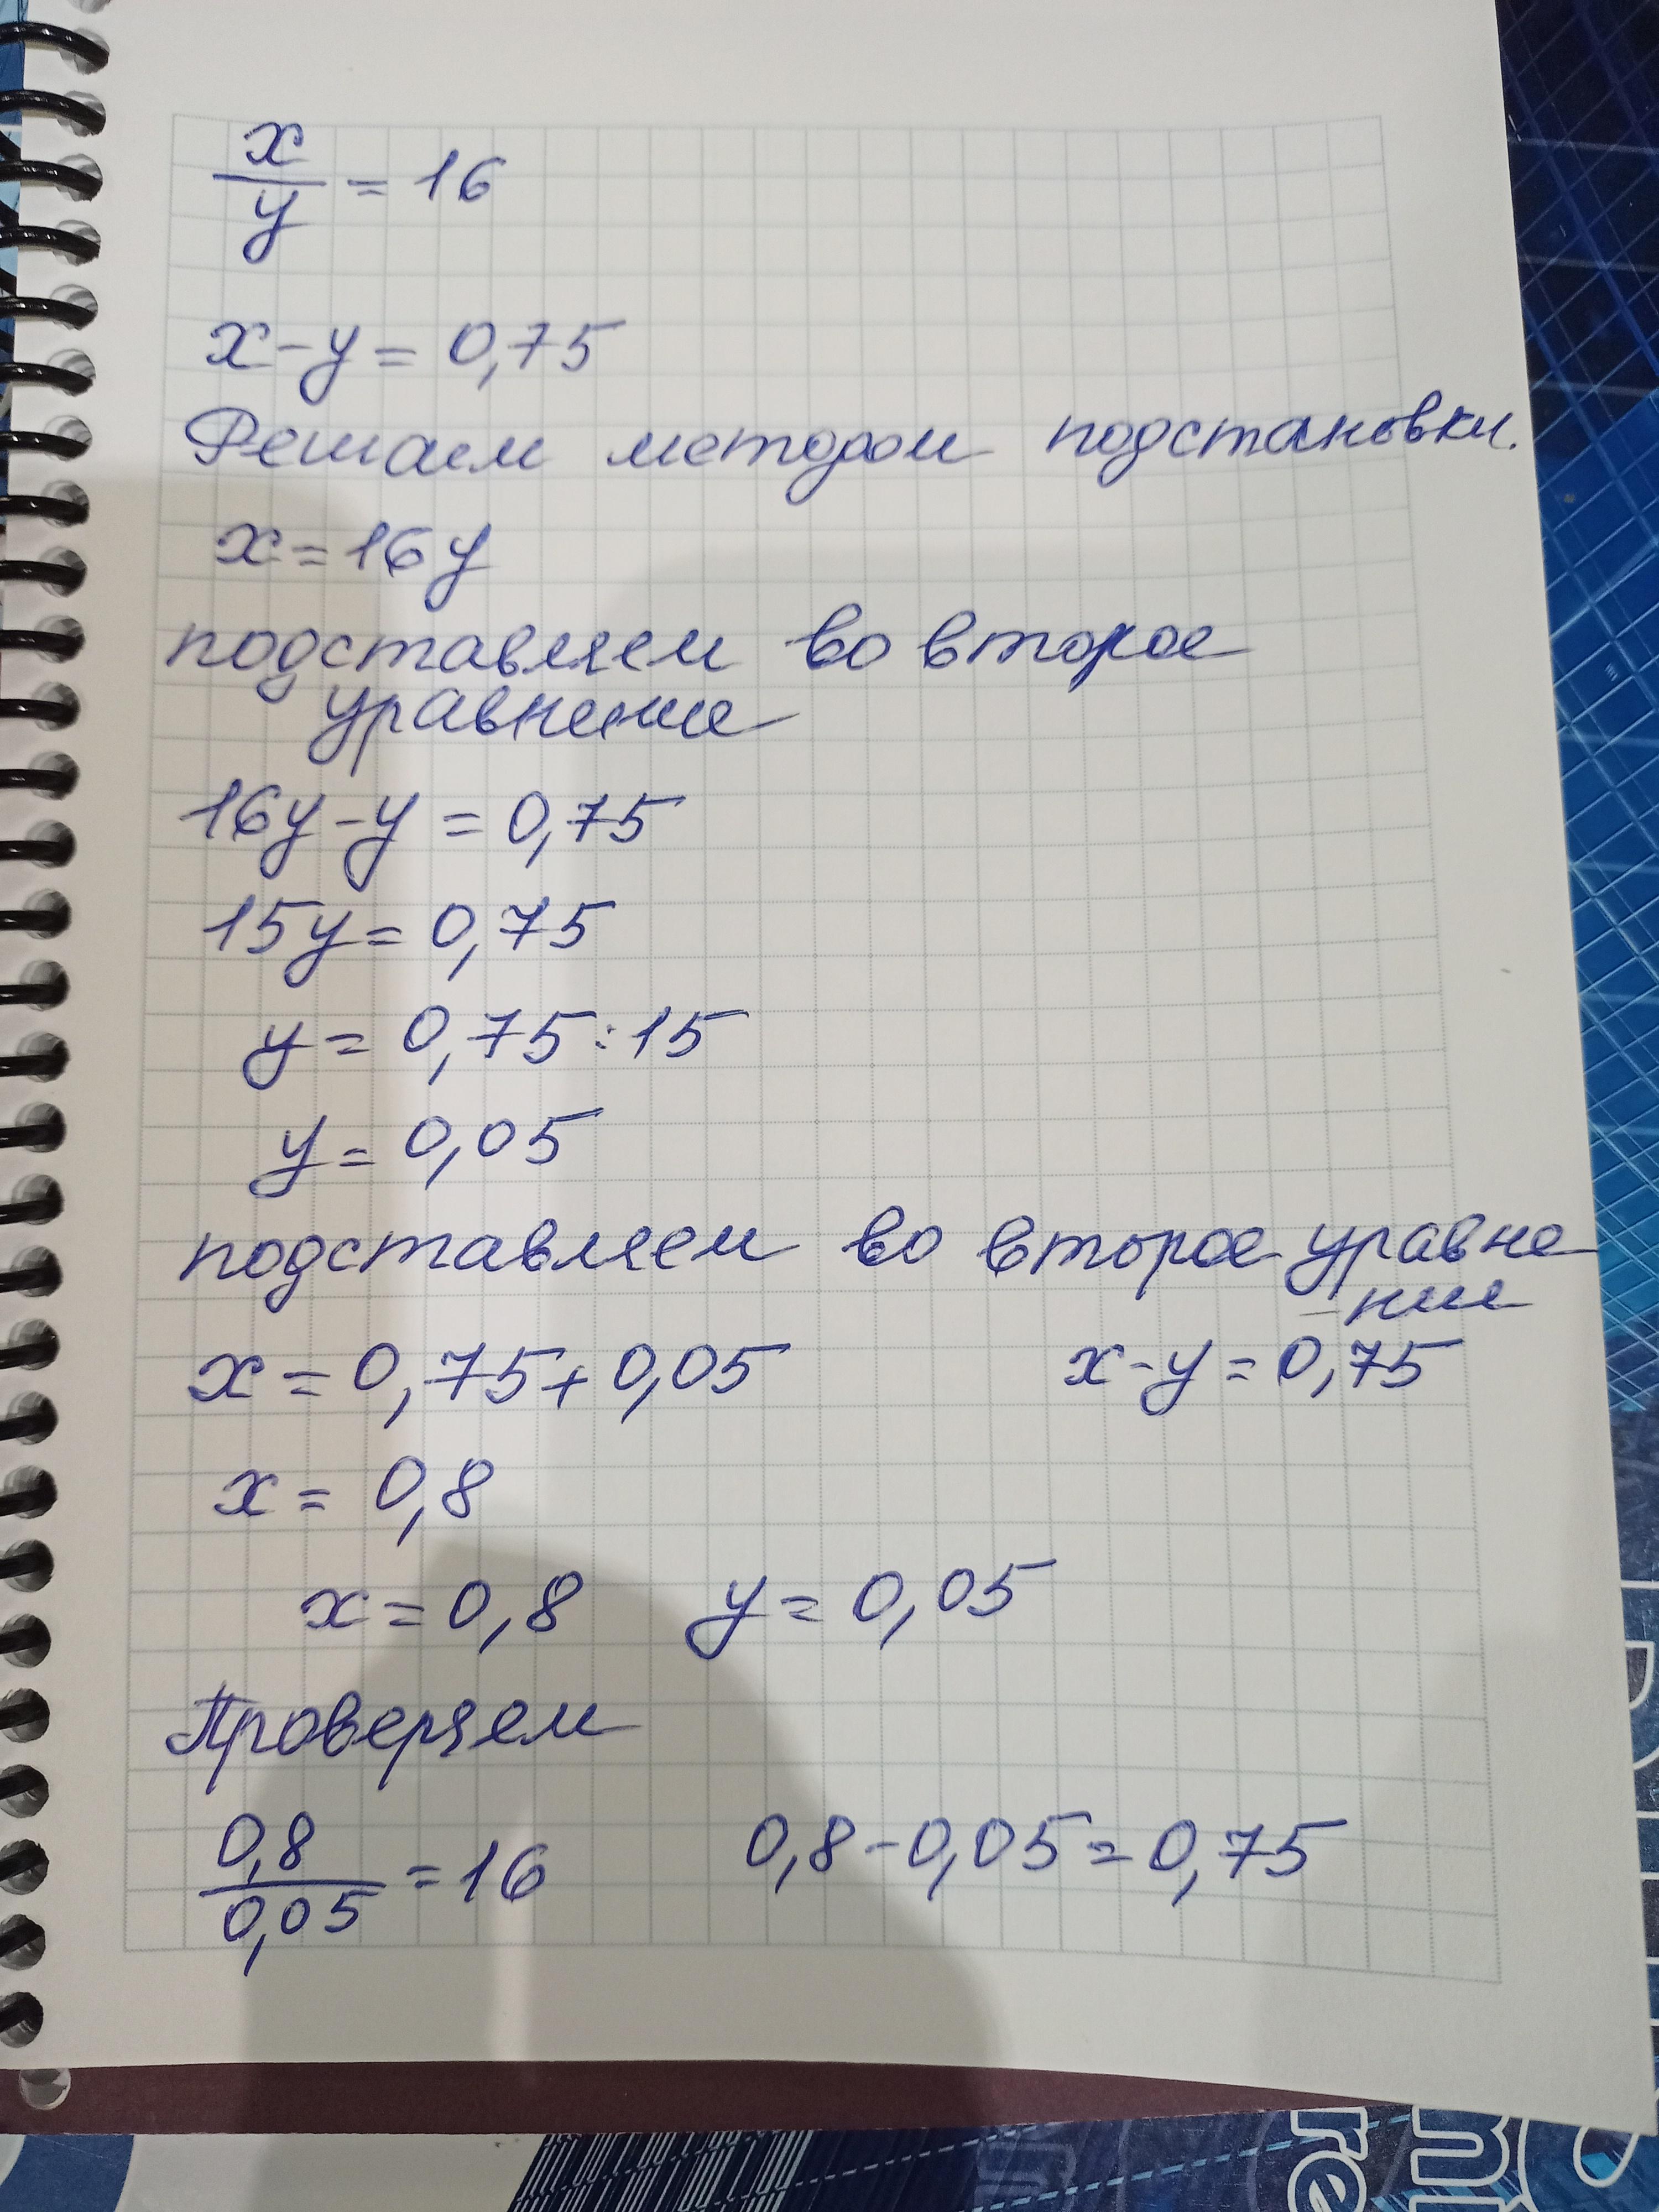 x/y = 16
x - y = 0,75
Решаем методом подстановки.
x = 16y
подставляем во второе
уравнение
16y - y = 0,75
15y = 0,75
y = 0,75 : 15
y = 0,05
подставляем во второе уравне
-ние
x = 0,75 + 0,05 x - y = 0,75
x = 0,8
x = 0,8 y = 0,05
Проверяем
0,8/0,05 = 16 0,8 - 0,05 = 0,75